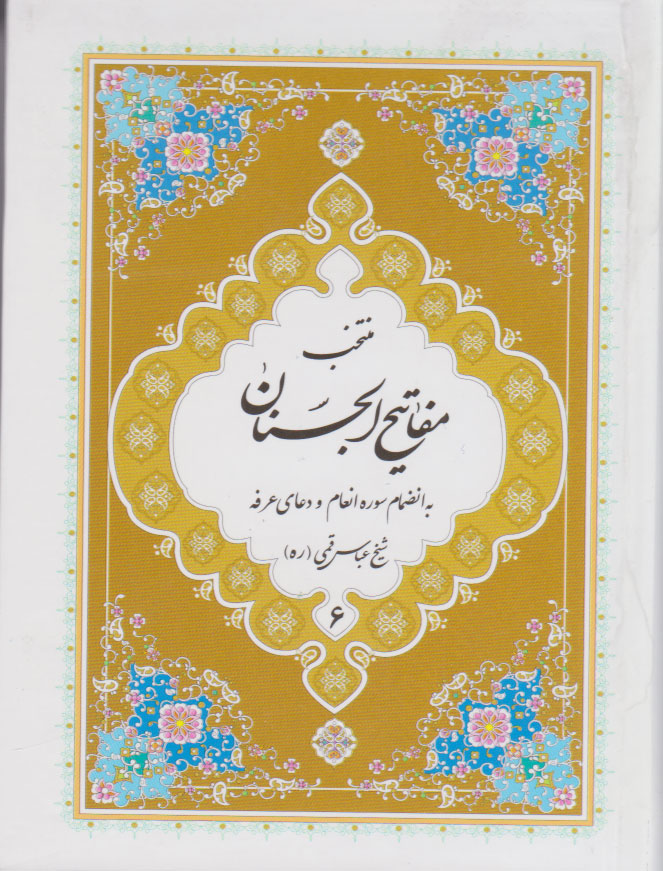 منتخب
مفاتیح الجنان
به انضمام سوره انعام و دعای عرفه
شیخ عباس قمی (ره)
۶